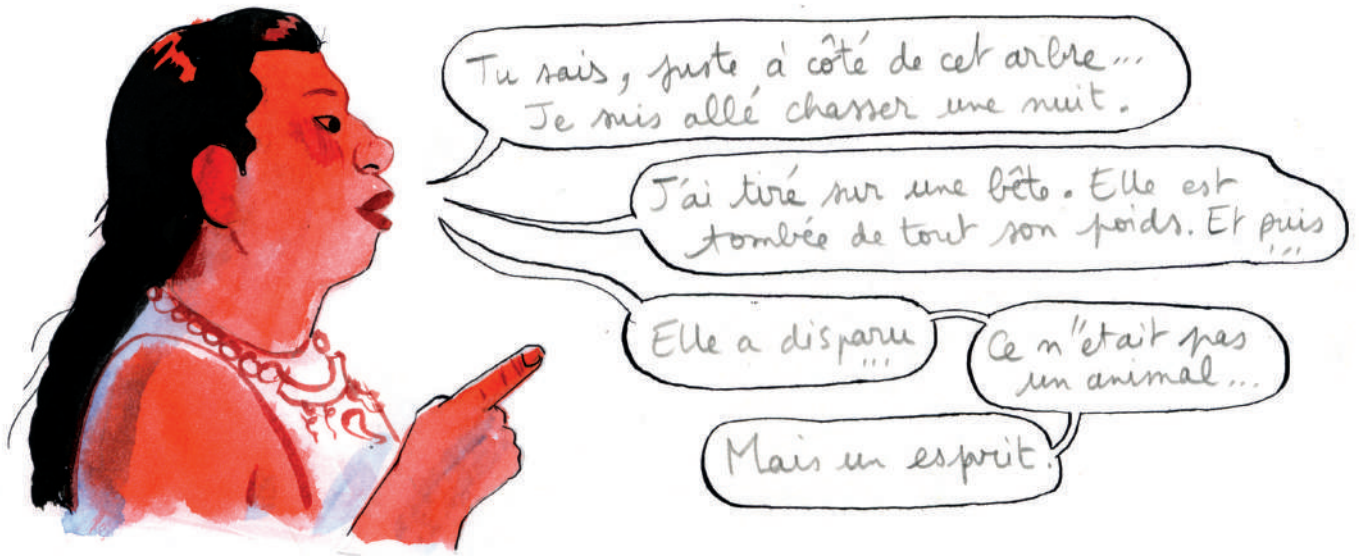 Tu sais, juste à côté de cet arbre...
Je suis allé chasser une nuit.
J'ai tiré sur une bête. Elle est
tombée de tout son poids. Et puis
...
Elle a disparu
...
Ce n'était pas
un animal...
Mais un esprit.